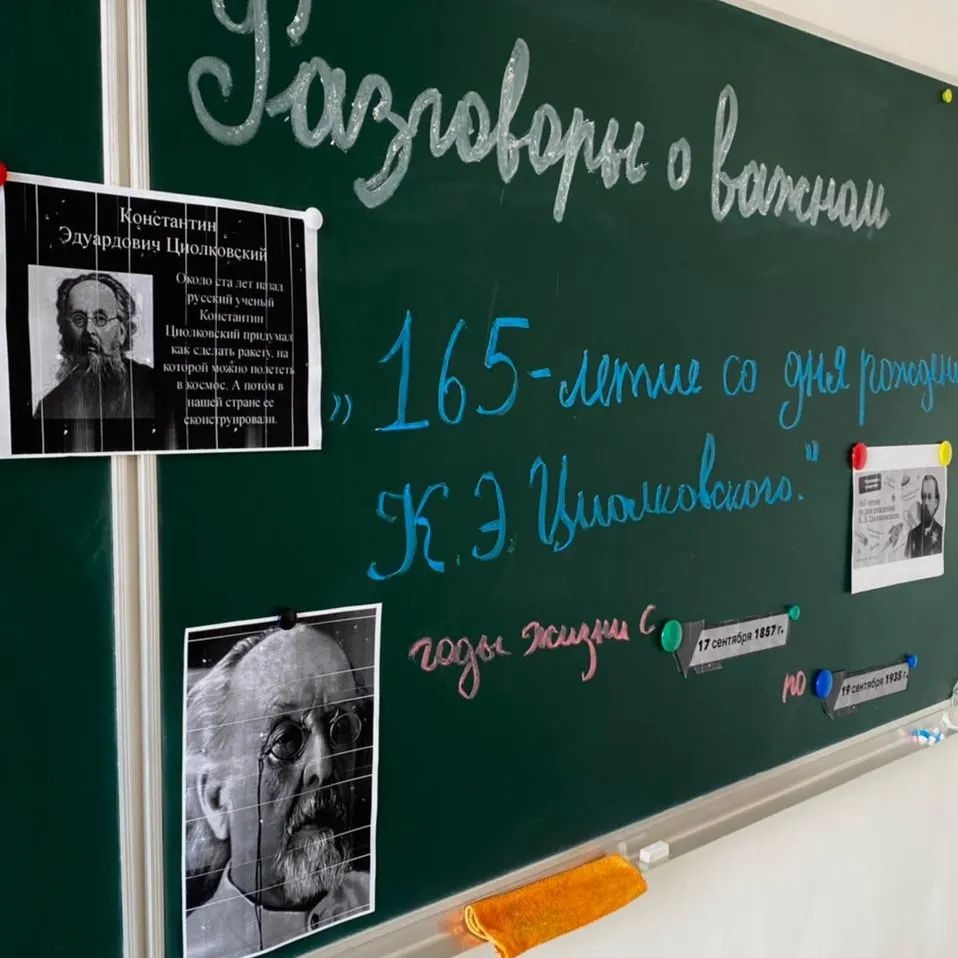 Разговоры о важном
Константин
Эдуардович Циолковский
Около ста лет назад
русский ученый
Константин
Циолковский придумал
как сделать ракету, на
которой можно полететь
в космос. А потом в
нашей стране ее
сконструировали.
„165-летие со дня рожден
К.Э. Циолковского."
165-летие
со дня рождения
К. Э. Циолковского
годы жизни с
17 сентября 1857 г.
по
19 сентября 1935 г.